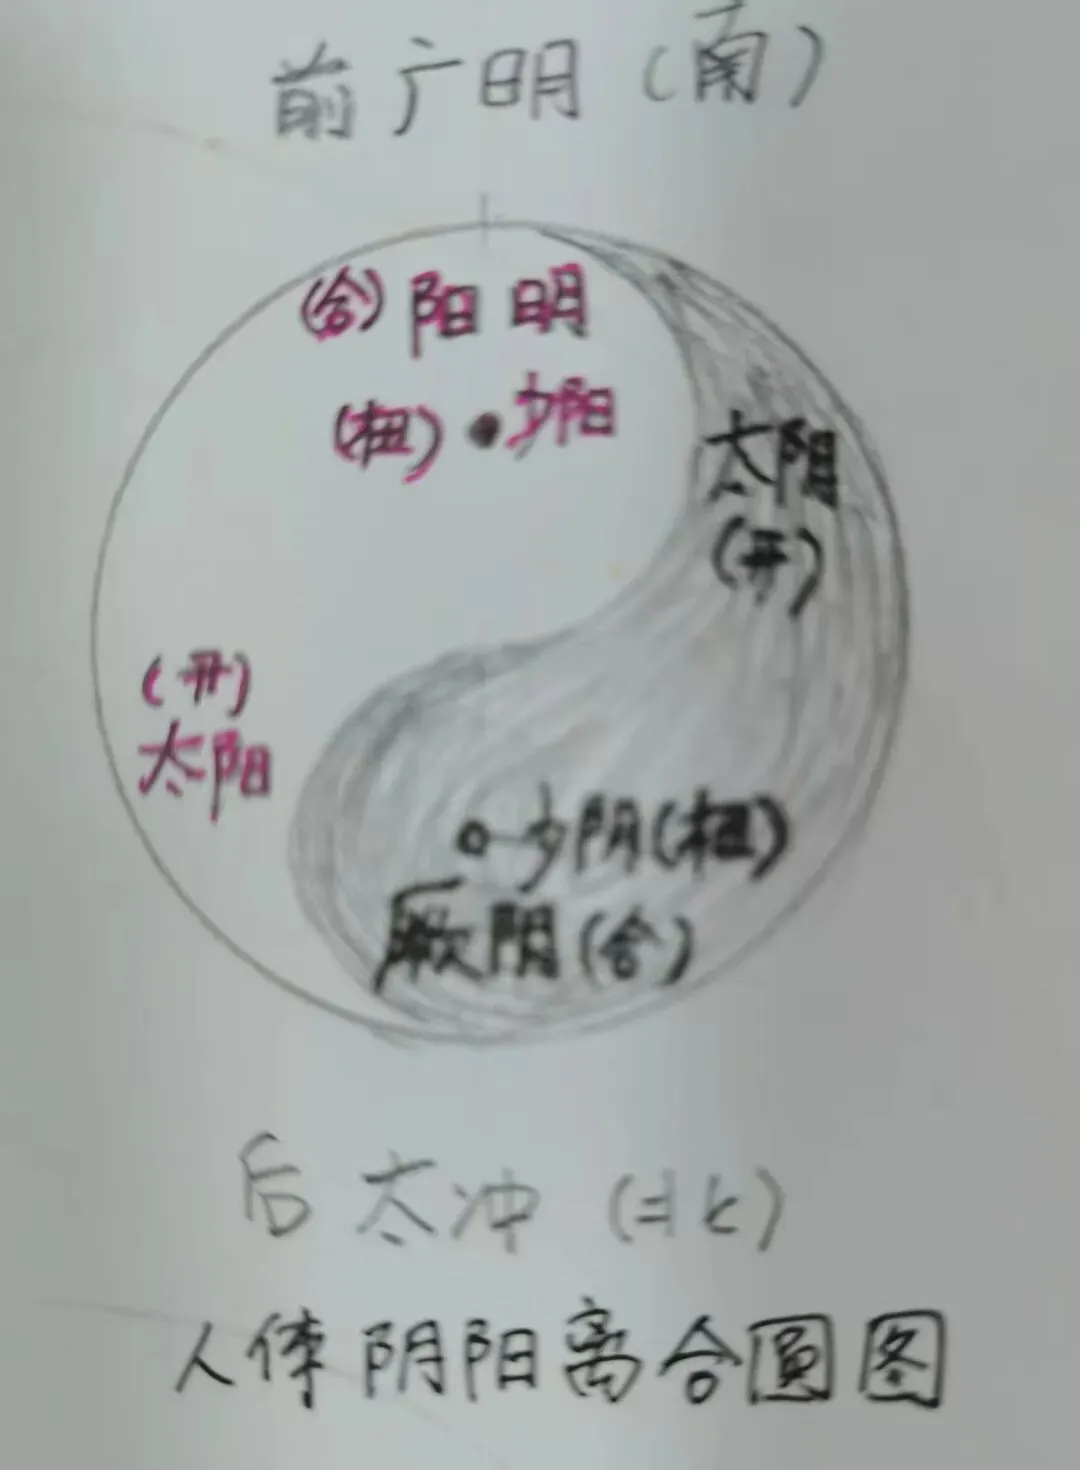 前广明(南)
(合)阳明
(枢)少阳
太阴
(开)
(开)
太阳
少阴(枢)
厥阴(合)
后太冲(北)
人体阴阳离合圓图